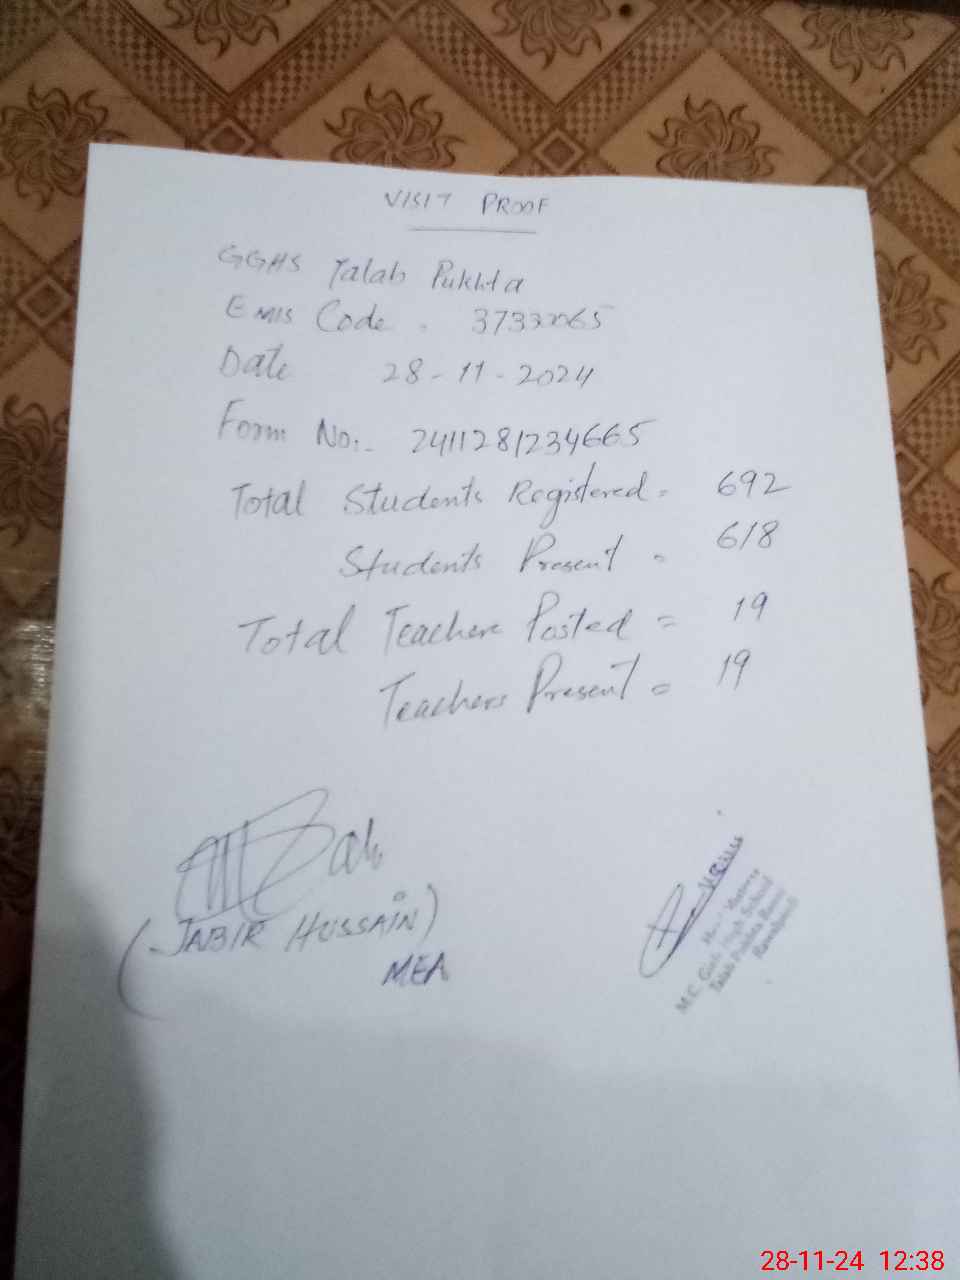 VISIT PROOF
GGHS Talab Pukhta
EMIS Code . 37330065
Date 28-11-2024
Form No:- 2411281234665
Total Students Registered = 692
Students Present = 618
Total Teachers Posted = 19
Teachers Present = 19
(JABIR HUSSAIN)
MEA
M.C. Girls High School
Talab Pukhta
Rawalpindi
28-11-24 12:38